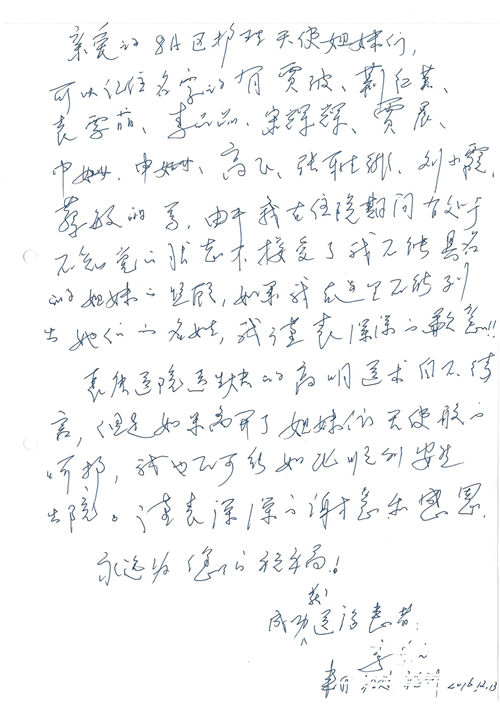 亲爱的8A区护理天使姐妹们,
可以记住名字的有贾波、靳红芸、
袁雪萌、李品品、宋辉辉、贾晨、
申姗姗、高飞、张 、刘小霞、
蔡敏 等,由于我在住院期间有处于
不知觉的状态下接受了我不能具名
的姐妹的照顾,如果我在这里不能列
出她们的名姓,我谨表深深的歉意!!
袁庚医院医生 的高明医术自不待
言,但是如果离开了姐妹们天使般的
呵护,我也不可能如此顺利安生
出院。谨表深深的谢意和感恩.
永远为您们祝福!
成功获医治患者:
李
2016.12.13